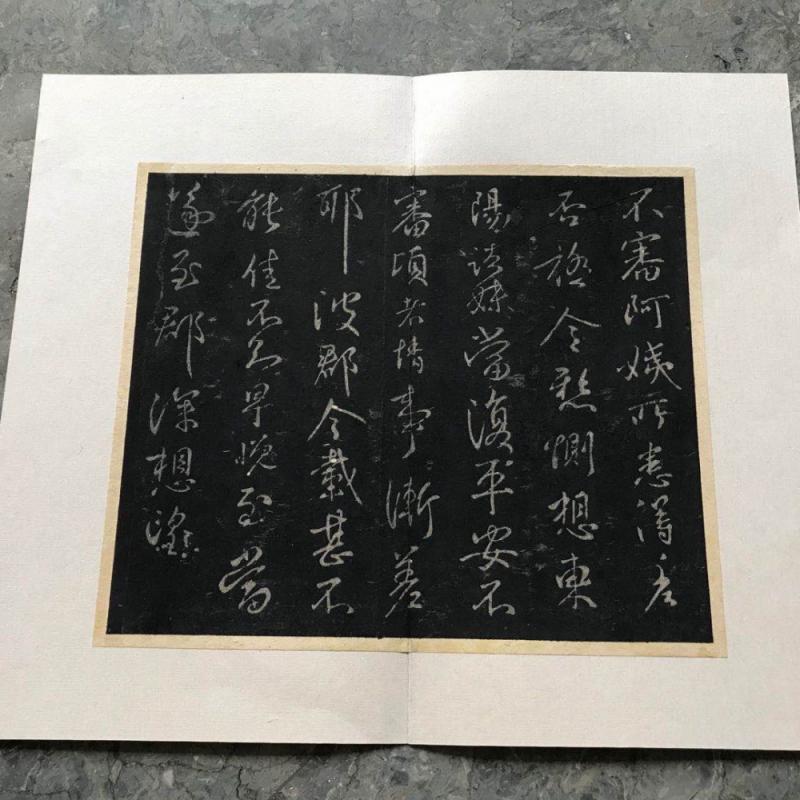 不審阿姨所患得差
否極令懸惻想東
陽諸妹當復平安不
審頃者情事漸差
耶彼郡今載甚不
能佳不知早晚至當
遂至郡深想